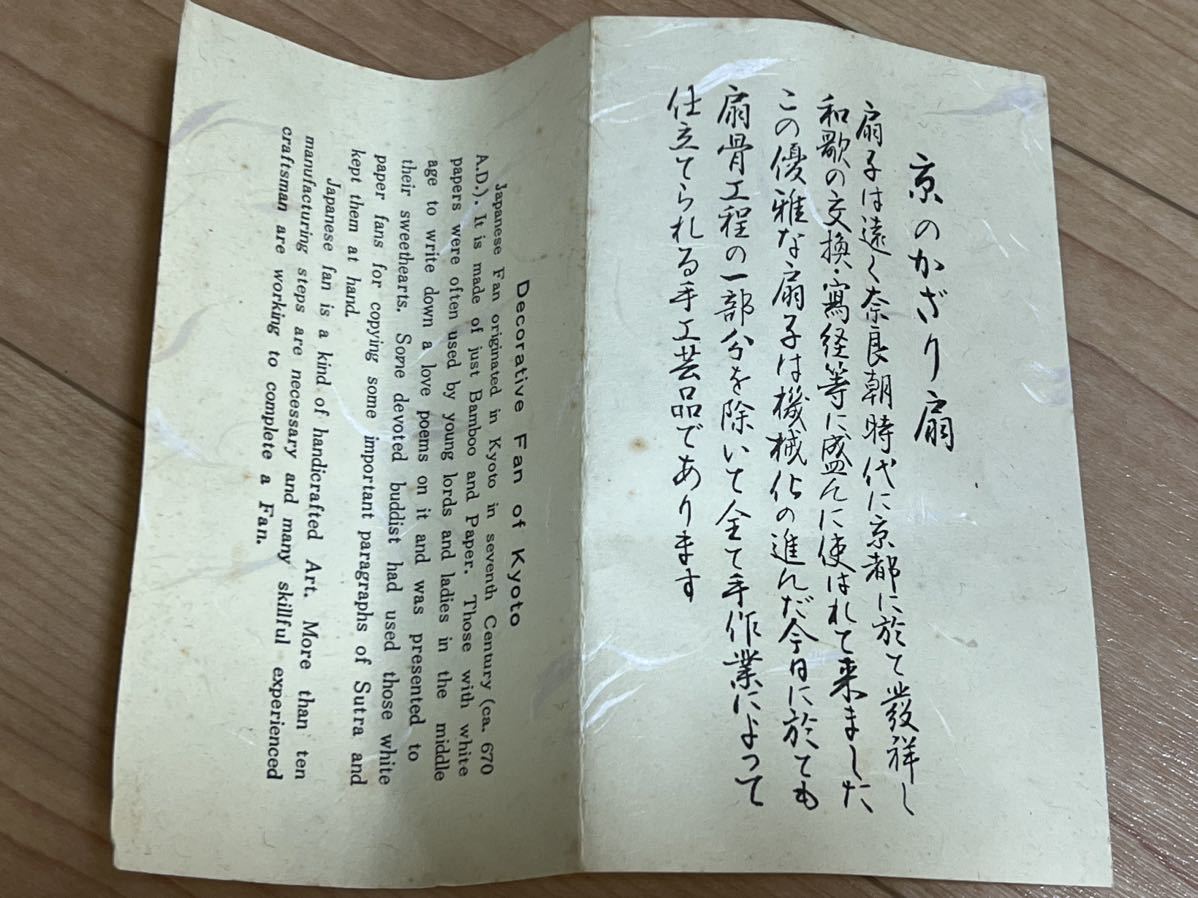 京のかざり扇
扇子は遠く奈良朝時代に京都に於て發祥し
和歌の交換・寫経等に盛んに使はれて来ました
この優雅な扇子は機械化の進んだ今日に於ても
扇骨工程の一部分を除いて全て手作業によって
仕立てられる手工芸品であります
Decorative Fan of Kyoto
Japanese Fan originated in Kyoto in seventh Century (ca. 670
A.D.). It is made of just Bamboo and Paper. Those with white
papers were often used by young lords and ladies in the middle
age to write down a love poems on it and was presented to
their sweethearts. Some devoted buddist had used those white
paper fans for copying some important paragraphs of Sutra and
kept them at hand.
Japanese fan is a kind of handicrafted Art. More than ten
manufacturing steps are necessary and many skillful experienced
craftsman are working to complete a Fan.